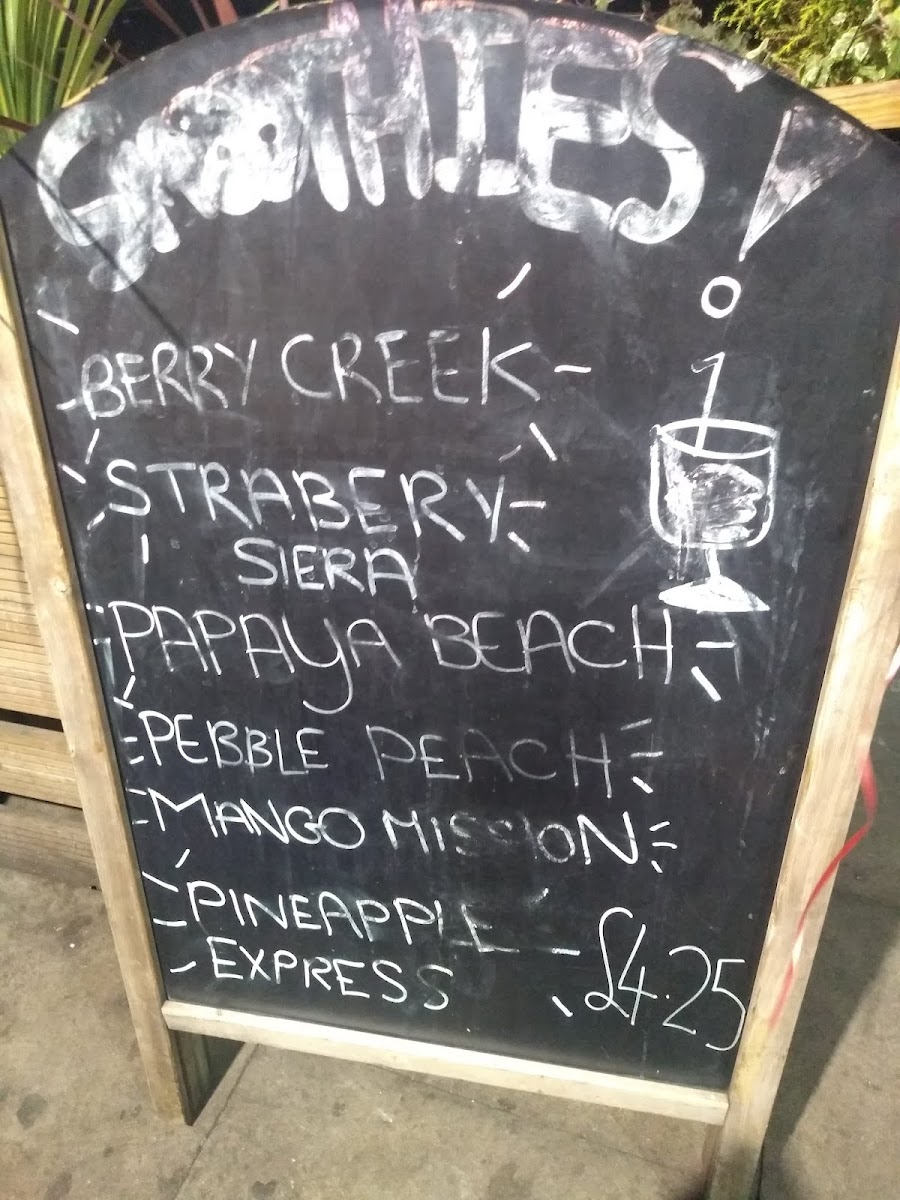 SMOOTHIES!
BERRY CREEK
STRABERY
SIERA
PAPAYA BEACH
PEBBLE PEACH
MANGO MISSION
PINEAPPLE
EXPRESS
£4.25